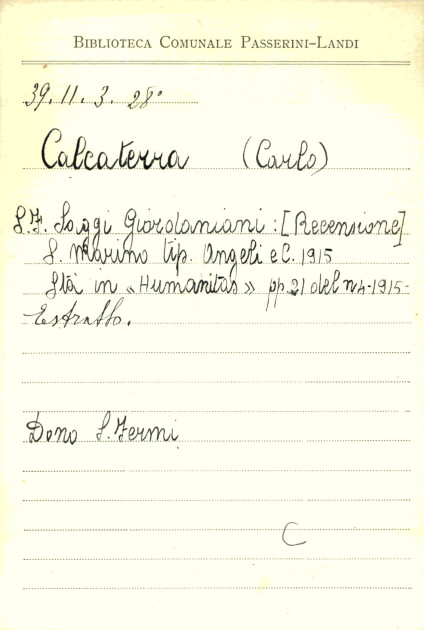 BIBLIOTECA COMUNALE PASSERINI-LANDI
39. II. 3. 28°
Calcaterra (Carlo)
S.F. Saggi Giordaniani: [Recensione]
S. Marino tip. Angeli e C. 1915
Sta in «Humanitas» pp. 21 del n 4-1915-
Estratto.
Dono S. Fermi
C